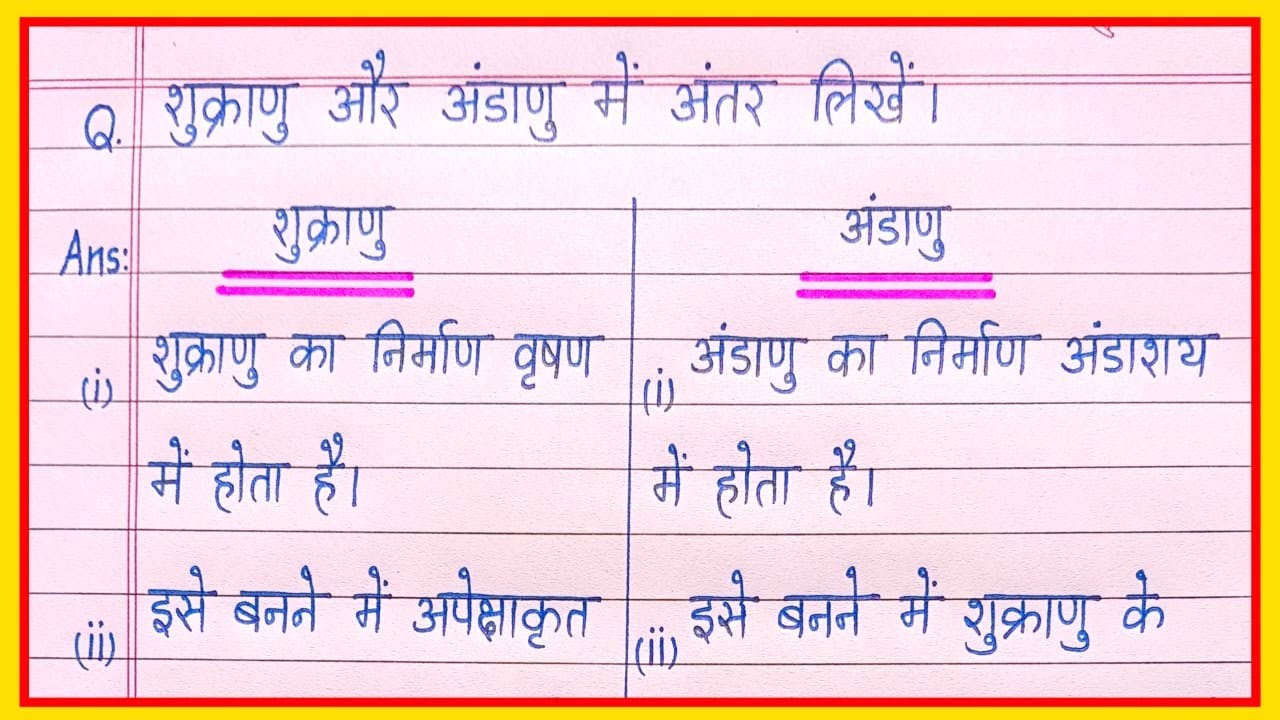 Q. शुक्राणु और अंडाणु में अंतर लिखें।
Ans: शुक्राणु
अंडाणु
(i) शुक्राणु का निर्माण वृषण
में होता है।
(i) अंडाणु का निर्माण अंडाशय
में होता है।
(ii) इसे बनने में अपेक्षाकृत
(ii) इसे बनने में शुक्राणु के